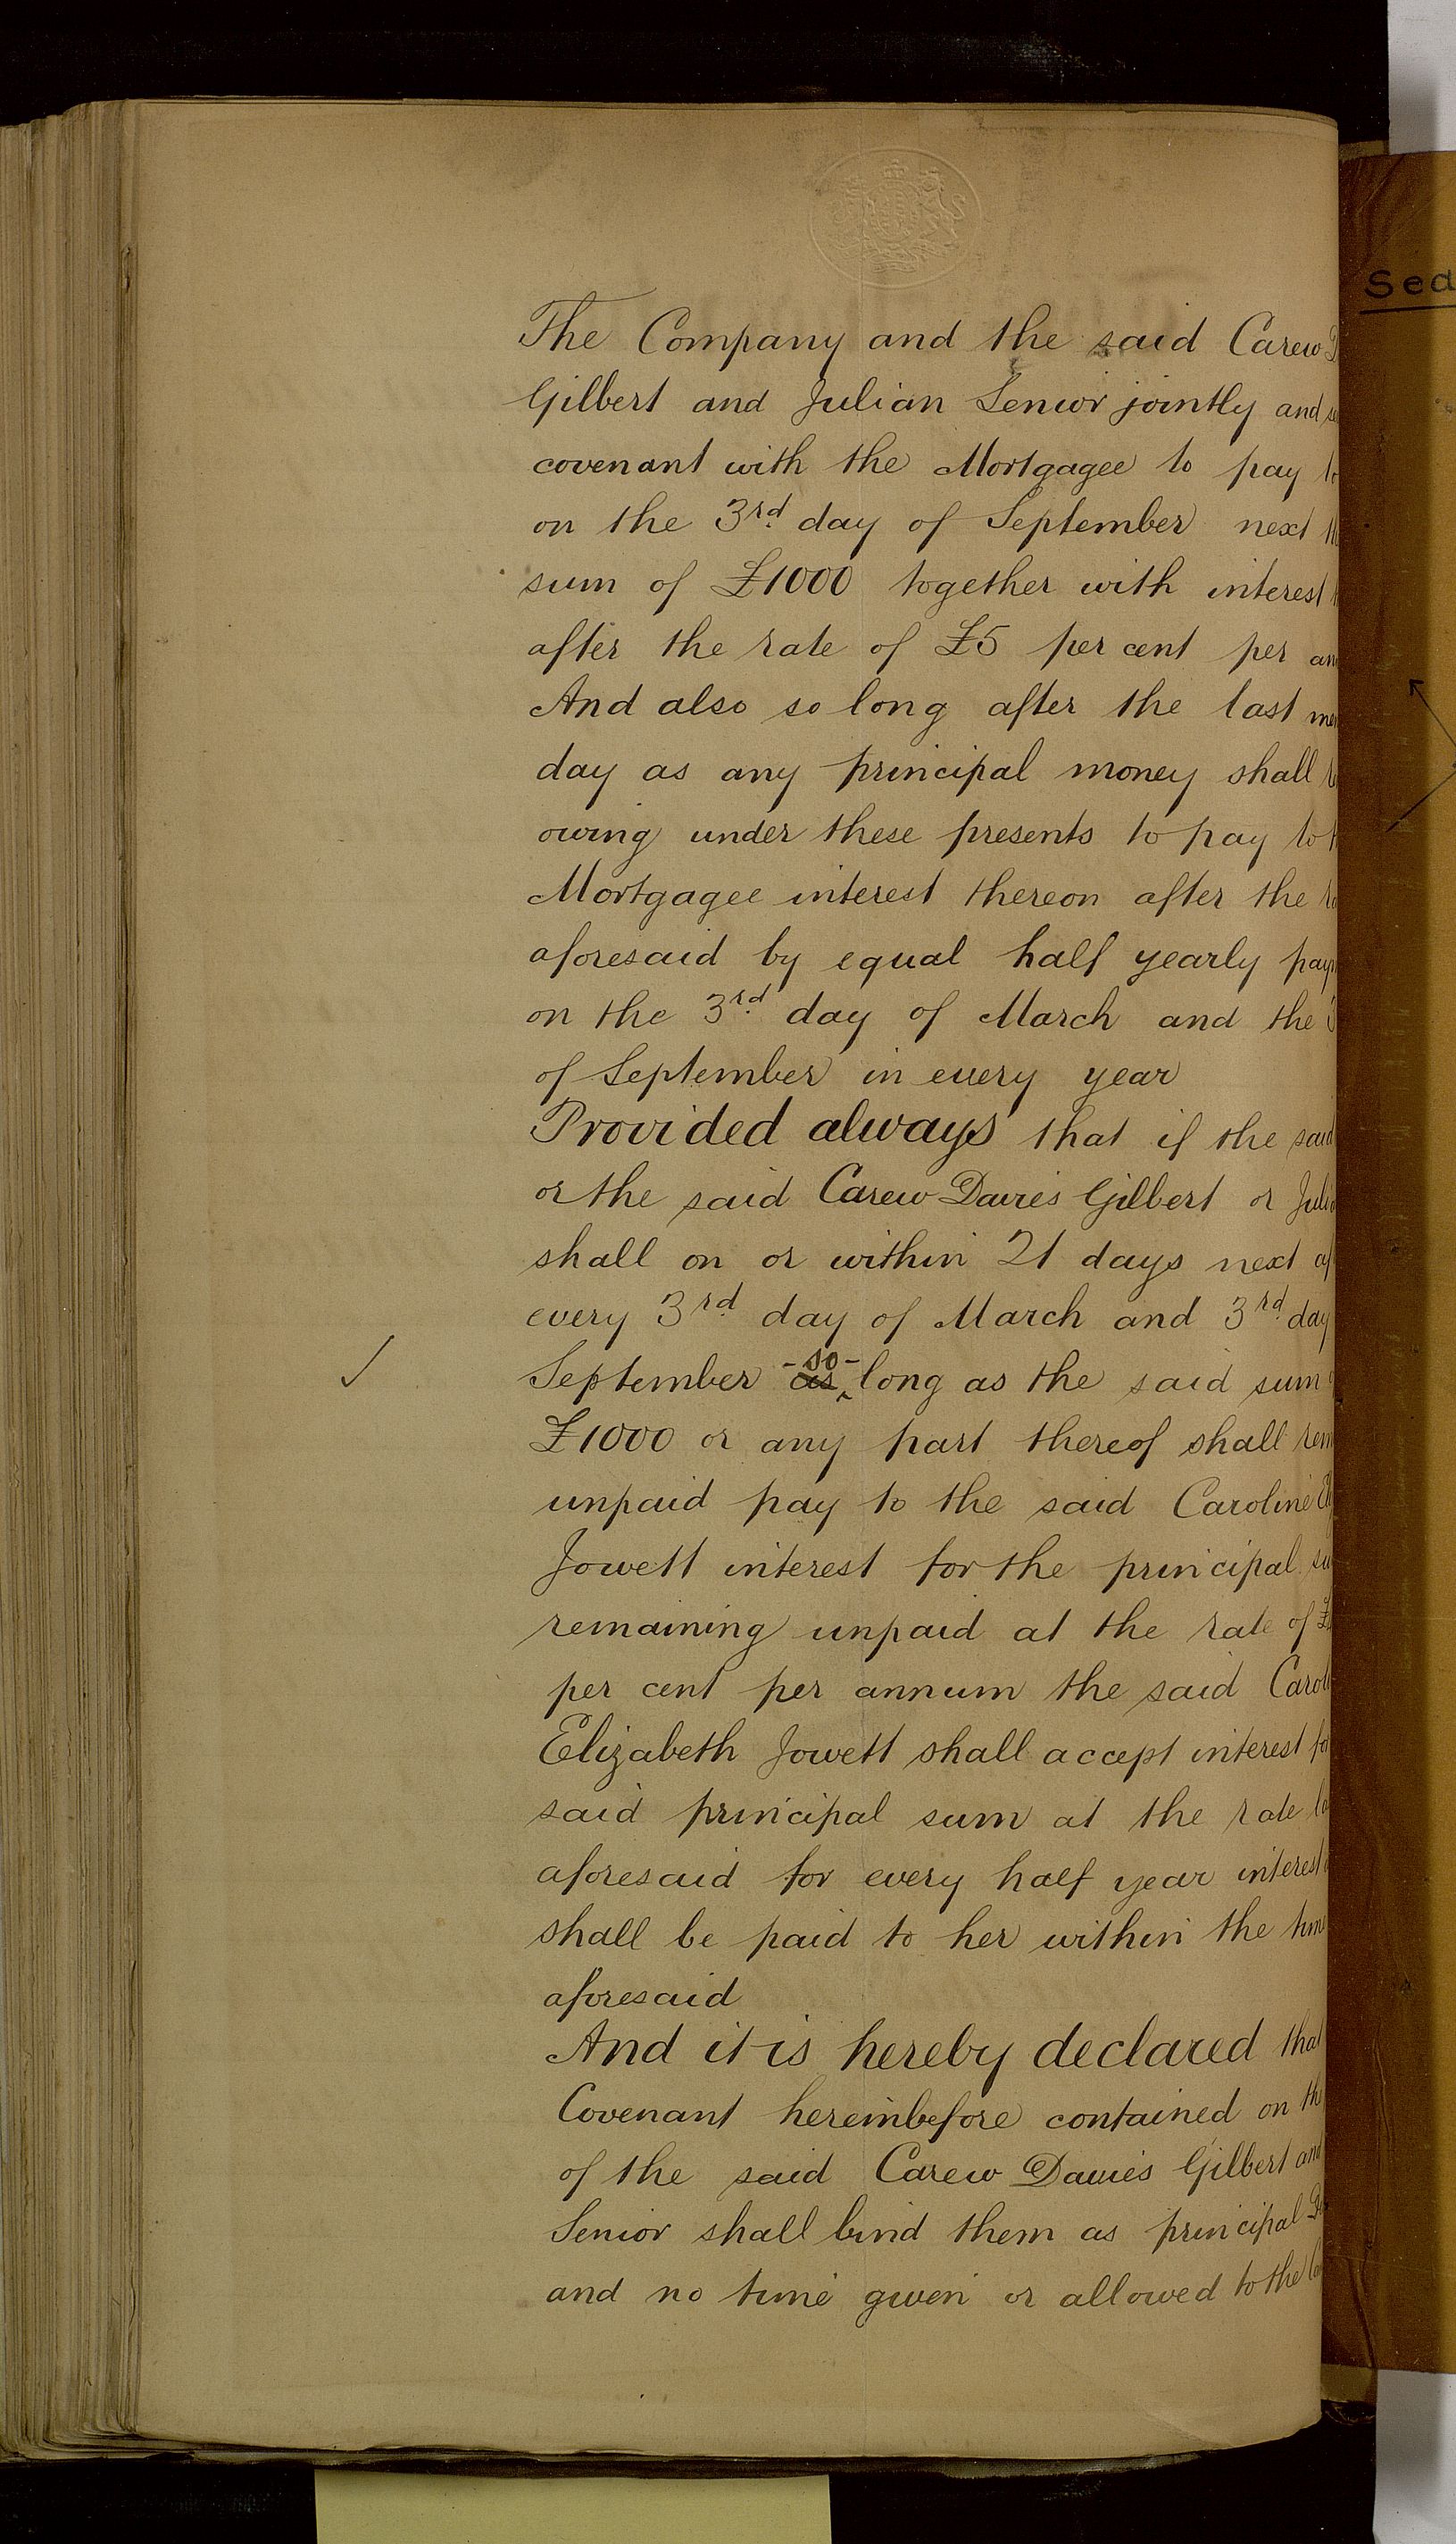 The Company and the said Carew
Gilbert and Julian Senior jointly and
covenant with the Mortgagee to pay
on the 3rd day of September next
sum of £1000 together with interest
after the rate of £5 per cent per
And also so long after the last
day as any principal money shall
owing under these presents to pay to
Mortgagee interest thereon after the
aforesaid by equal half yearly
on the 3rd day of March and the
of September in every year
Provided always that if the said
or the said Carew Davies Gilbert or
shall on or within 21 days next
every 3rd day of March and 3rd day
September as -so- long as the said sum
£1000 or any part thereof shall
unpaid pay to the said Caroline
Jowett interest for the principal
remaining unpaid at the rate of
per cent per annum the said
Elizabeth Jowett shall accept interest
said principal sum at the rate
aforesaid for every half year interest
shall be paid to her within the
aforesaid
And it is hereby declared that
Covenant hereinbefore contained on
of the said Carew Davies Gilbert and
Senior shall bind them as principal
and no time given or allowed to the